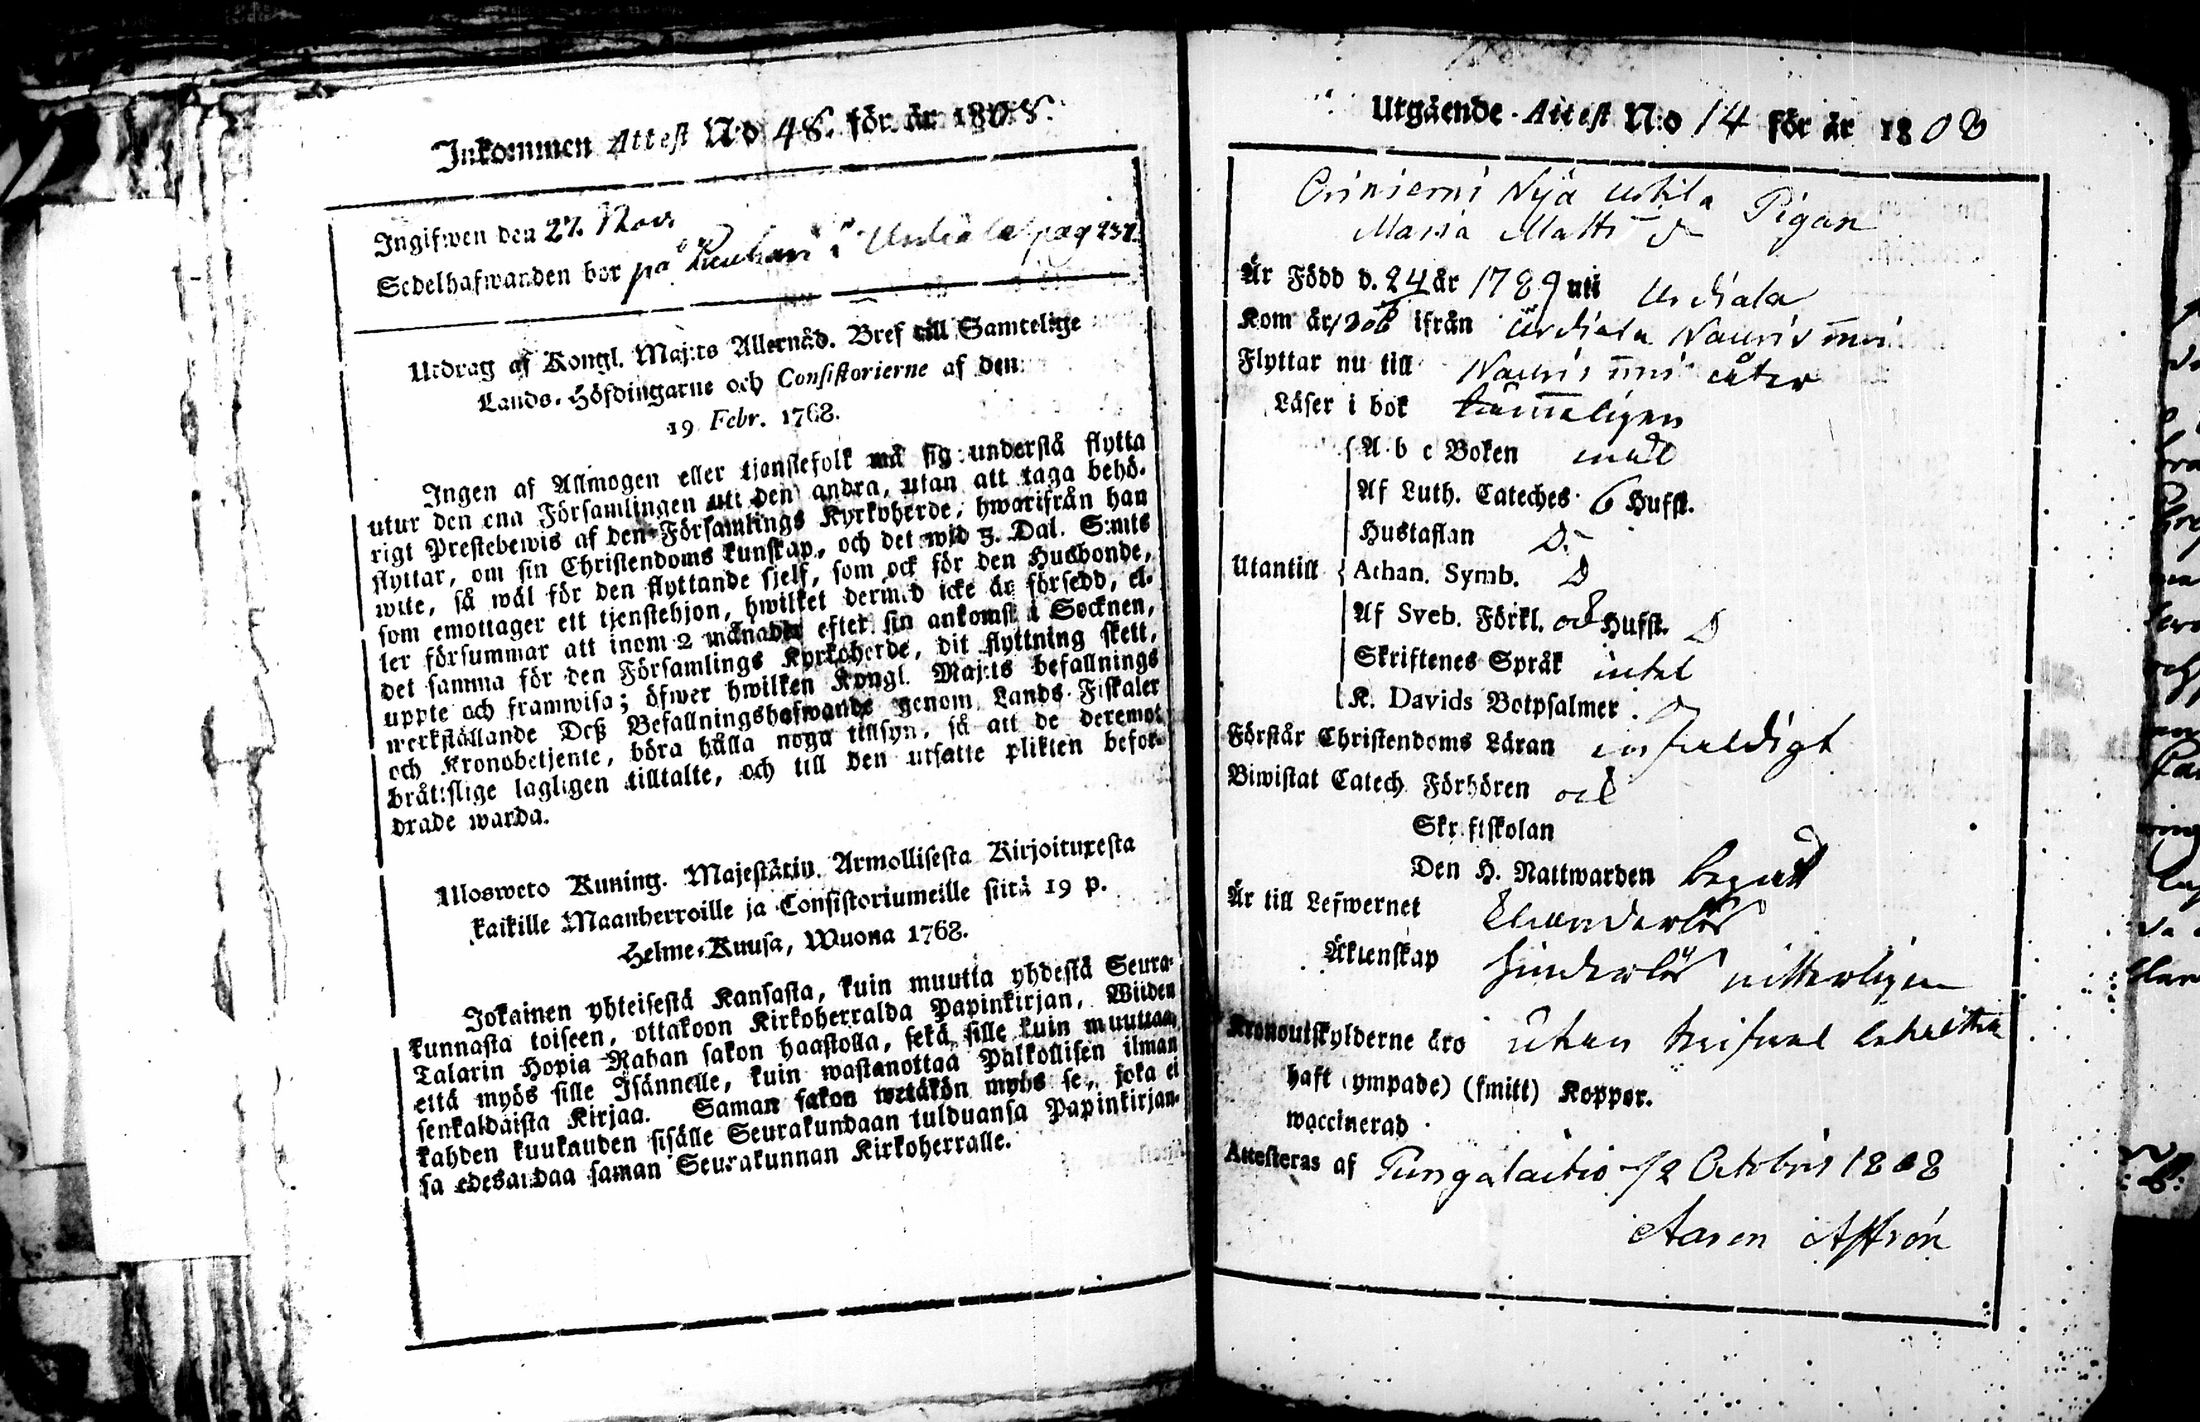 Inkommen Attest N:o 48. för år 1808.
Ingifwen den 27. Nov.
Sedelhafwanden bor på i Urdiala pag 231.
Utdrag af Kongl. Maj:ts Allernåd. Bref till Samtelige
Lands-Höfdingarne och Consistorierne af den
19 Febr. 1768.
Ingen af Allmogen eller tjenstefolk må sig understå flytta
utur den ena Församlingen uti den andra, utan att taga behö-
rigt Prestebewis af den Församlings Kyrkoherde, hwarifrån han
flyttar, om sin Christendoms kunskap, och det wid 3. Dal. S:mts
wite, så wäl för den flyttande sjelf, som ock för den Husbonde,
som emottager ett tjenstehjon, hwilket dermed icke är försedd, el-
ler försummar att inom 2 månader efter sin ankomst i Socknen,
det samma för den Församlings Kyrkoherde, dit flyttning skett,
uppte och framwisa; öfwer hwilken Kongl. Maj:ts befallnings
werkställande Deß Befallningshafwande genom Lands-Fiskaler
och Kronobetjente, böra hålla noga tillsyn, så att de deremot
bråttslige lagligen tilltalte, och till den utsatte plikten befor-
drade warda.
Ulosweto Kuning. Majestätin Armollisesta Kirjoituxesta
kaikille Maanherroille ja Consistoriumeille siitä 19 p.
Helme-Kuusa, Wuona 1768.
Jokainen yhteisestä Kansasta, kuin muutta yhdestä Seura-
kunnasta toiseen, ottakoon Kirkoherralda Papinkirjan, Wiiden
Talarin Hopia-Rahan sakon haastolla, sekä sille kuin muuttaa,
että myös sille Isännelle, kuin wastanottaa Palkollisen ilman
senkaldaista Kirjaa. Saman sakon wetäkön myös se, joka ei
kahden kuukauden sisälle Seurakundaan tulduansa Papinkirjan-
sa edesandaa saman Seurakunnan Kirkoherralle.
Utgående Attest N:o 14 för år 1808
Nyä Pigan
Maria Matts dr
Är Född d. 24 år 1789 uti Urdiala
Kom år 1806 ifrån Urdiala
Flyttar nu till åter
Läser i bok
A b c Boken
Af Luth. Cateches 6 Hufst.
Hustaflan D:
Utantill Athan. Symb. D
Af Sveb. Förkl. och Hufst. D
Skriftenes Språk intet
K. Davids Botpsalmer
Förstår Christendoms Läran enfaldigt
Biwistat Catech Förhören och
Skriftskolan
Den H. Nattwarden begått
Är till Lefwernet
Äktenskap hinderlös witterligen
Kronoutskylderne äro utan
haft (ympade) (smitt) Koppor.
waccinerad
Attesteras af Pungalaitio 12 Octobris 1808